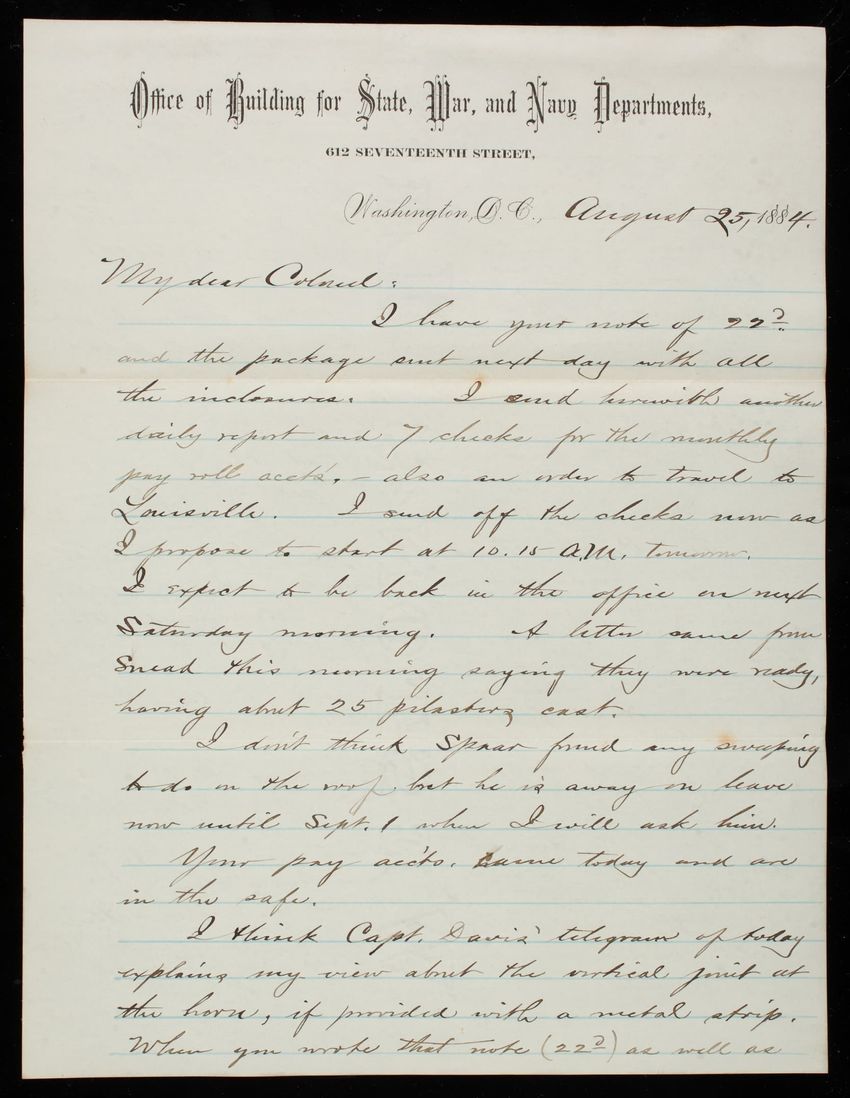 Office of Building for State, War, and Navy Departments,
612 SEVENTEENTH STREET,
Washington, D. C., August 25, 1884.
My dear Colonel:
I have your note of 22d
and the package sent next day with all
the inclosures. I send herewith another
daily report and 7 checks for the monthly
pay roll accts', - also an order to travel to
Louisville. I send off the checks now as
I propose to start at 10.15 A.M. tomorrow.
I expect to be back in the office on next
Saturday morning. A letter came from
Snead this morning saying they were ready,
having about 25 pilasters cast.
I don't think Spaar found any sweeping
to do on the roof but he is away on leave
now until Sept. 1 when I will ask him.
Your pay acc'ts. came today and are
in the safe.
I think Capt. Davis' telegram of today
explains my view about the vertical joint at
the horn, if provided with a metal strip.
When you wrote that note (22d) as well as